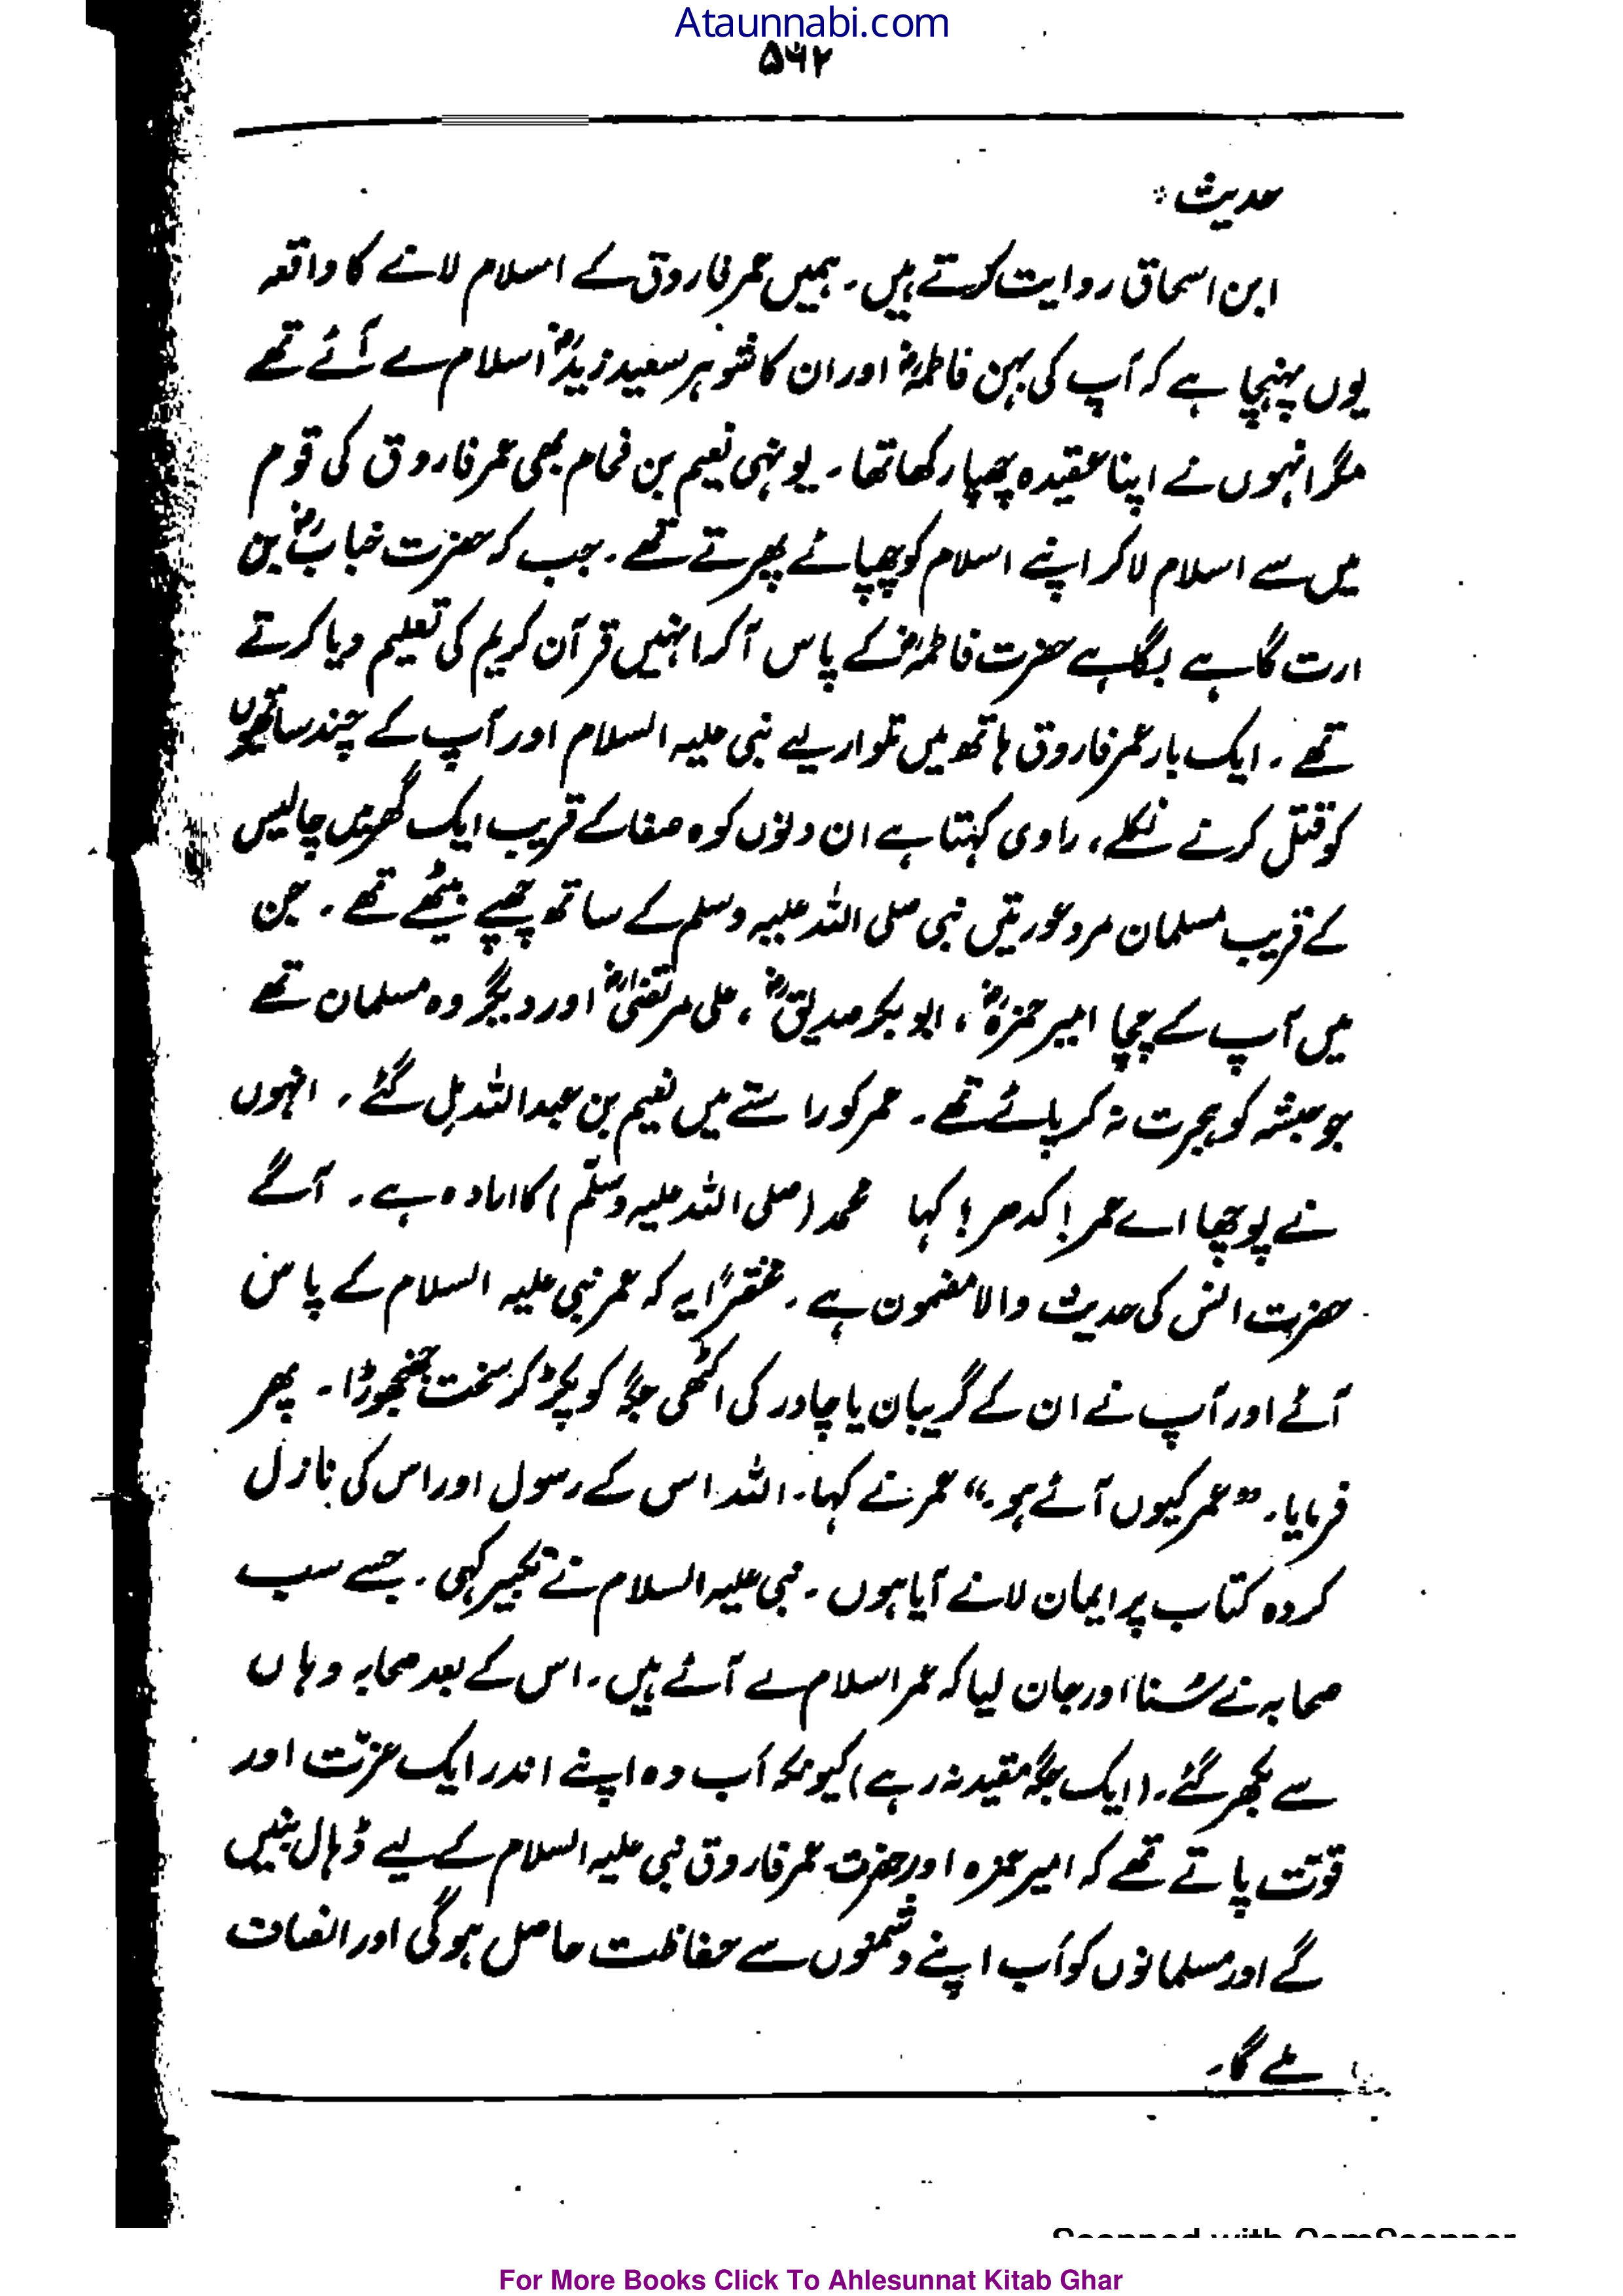 Ataunnabi.com
۵۶۲
حدیث:
ابن اسحاق روایت کرتے ہیں۔ ہمیں عمر فاروق کے اسلام لانے کا واقعہ
یوں پہنچا ہے کہ آپ کی بہن فاطمہؓ اور ان کا شوہر سعید زیدؓ اسلام لے آئے تھے
مگر انہوں نے اپنا عقیدہ چھپا رکھا تھا۔ یونہی نعیم بن نحام بھی عمر فاروق کی قوم
میں سے اسلام لا کر اپنے اسلام کو چھپائے پھرتے تھے۔ جب کہ حضرت خبابؓ بن
ارت گاہے بگاہے حضرت فاطمہؓ کے پاس آ کر انہیں قرآن کریم کی تعلیم دیا کرتے
تھے۔ ایک بار عمر فاروق ہاتھ میں تلوار لیے نبی علیہ السلام اور آپ کے چند ساتھیوں
کو قتل کرنے نکلے، راوی کہتا ہے ان دنوں کوہ صفا کے قریب ایک گھر میں چالیس
کے قریب مسلمان مرد عورتیں نبی صلی اللہ علیہ وسلم کے ساتھ چھپے بیٹھے تھے۔ جن
میں آپ کے چچا امیر حمزہؓ، ابوبکر صدیقؓ، علی مرتضیٰؓ اور دیگر وہ مسلمان تھے
جو حبشہ کو ہجرت نہ کر پائے تھے۔ عمر کو راستے میں نعیم بن عبداللہ مل گئے۔ انہوں
نے پوچھا اے عمر! کدھر! کہا محمد (صلی اللہ علیہ وسلّم) کا ارادہ ہے۔ آگے
حضرت انس کی حدیث والا مضمون ہے۔ مختصراً یہ کہ عمر نبی علیہ السلام کے پاس
آئے اور آپ نے ان کے گریبان یا چادر کی اکٹھی جگہ کو پکڑ کر سخت جھنجھوڑا۔ پھر
فرمایا۔ ”عمر کیوں آئے ہو۔“ عمر نے کہا۔ اللہ اس کے رسول اور اس کی نازل
کردہ کتاب پر ایمان لانے آیا ہوں۔ نبی علیہ السلام نے تکبیر کہی۔ جسے سب
صحابہ نے سُنا اور جان لیا کہ عمر اسلام لے آئے ہیں۔ اس کے بعد صحابہ وہاں
سے بکھر گئے۔ (ایک جگہ مقید نہ رہے) کیونکہ اَب وہ اپنے اندر ایک عزّت اور
قوّت پاتے تھے کہ امیر حمزہ اور حضرت عمر فاروق نبی علیہ السلام کے لیے ڈہال بنیں
گے اور مسلمانوں کو اَب اپنے دشمنوں سے حفاظت حاصل ہو گی اور انصاف
ملے گا۔
For More Books Click To Ahlesunnat Kitab Ghar